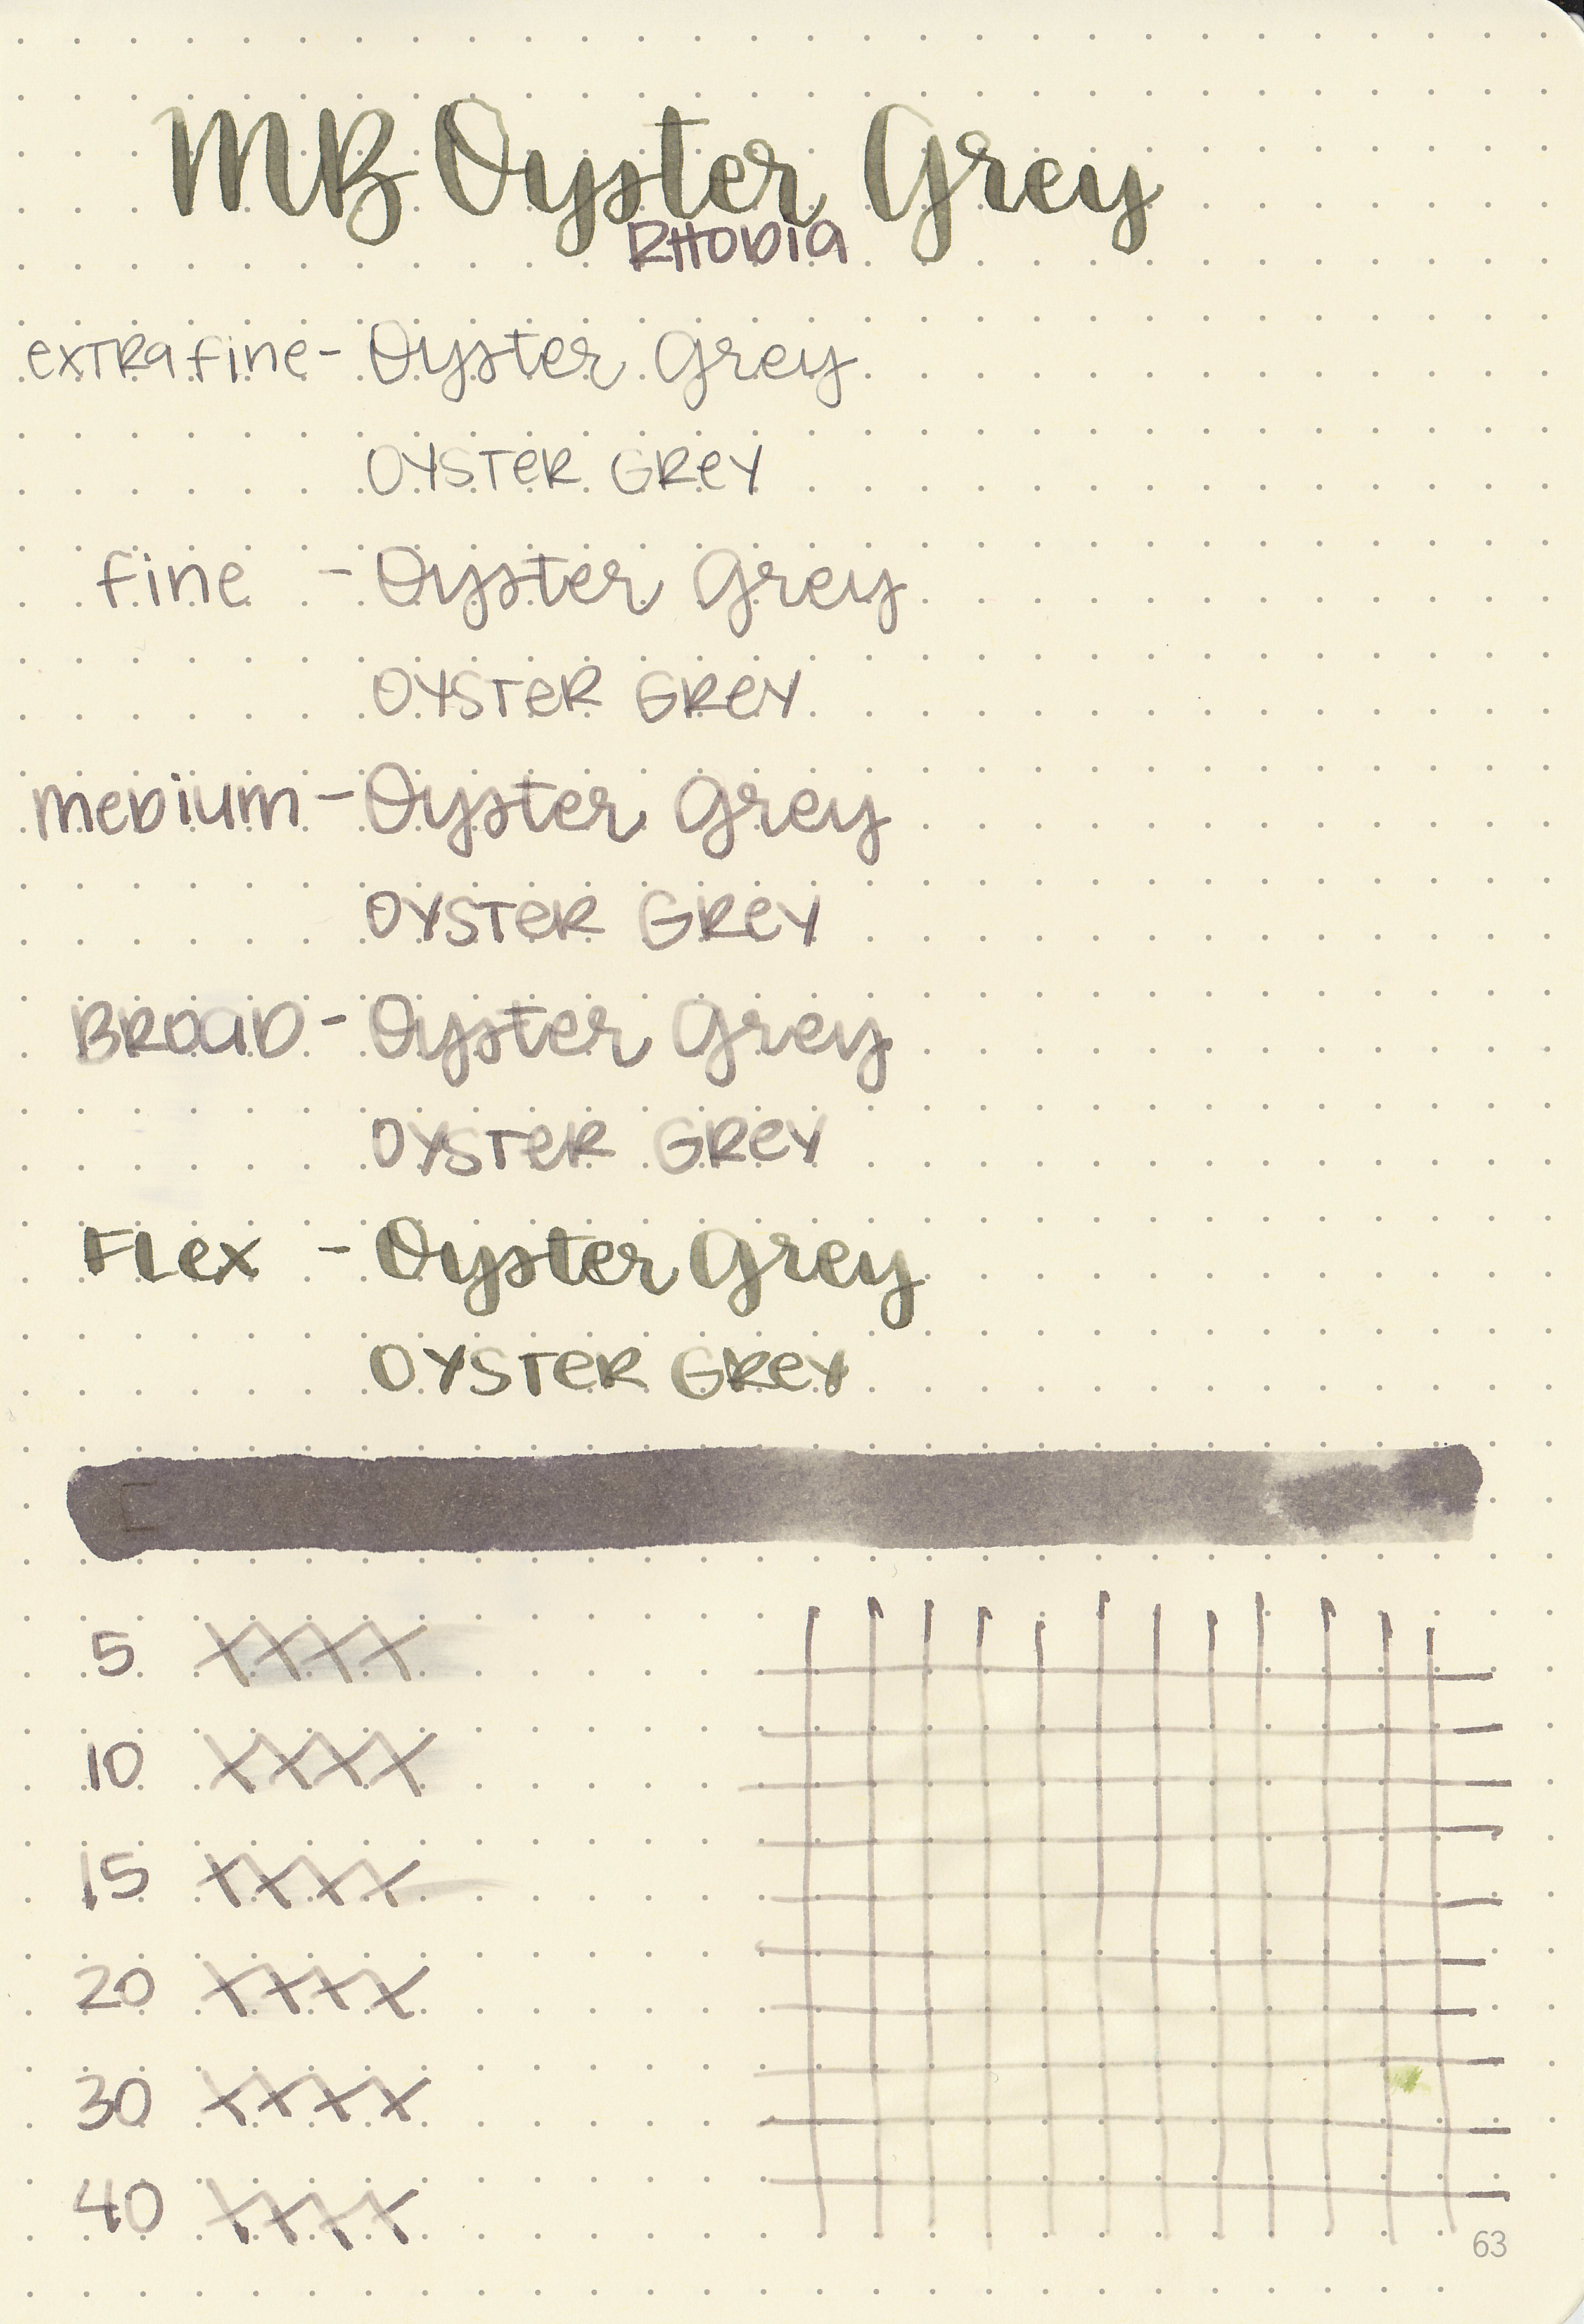 MB Oyster Grey
RHODIA
extra fine - Oyster Grey
OYSTER GREY
fine - Oyster Grey
OYSTER GREY
medium - Oyster Grey
OYSTER GREY
BROAD - Oyster Grey
OYSTER GREY
FLex - Oyster Grey
OYSTER GREY
5 XXXX
10 XXXX
15 XXXX
20 XXXX
30 XXXX
40 XXXX
63